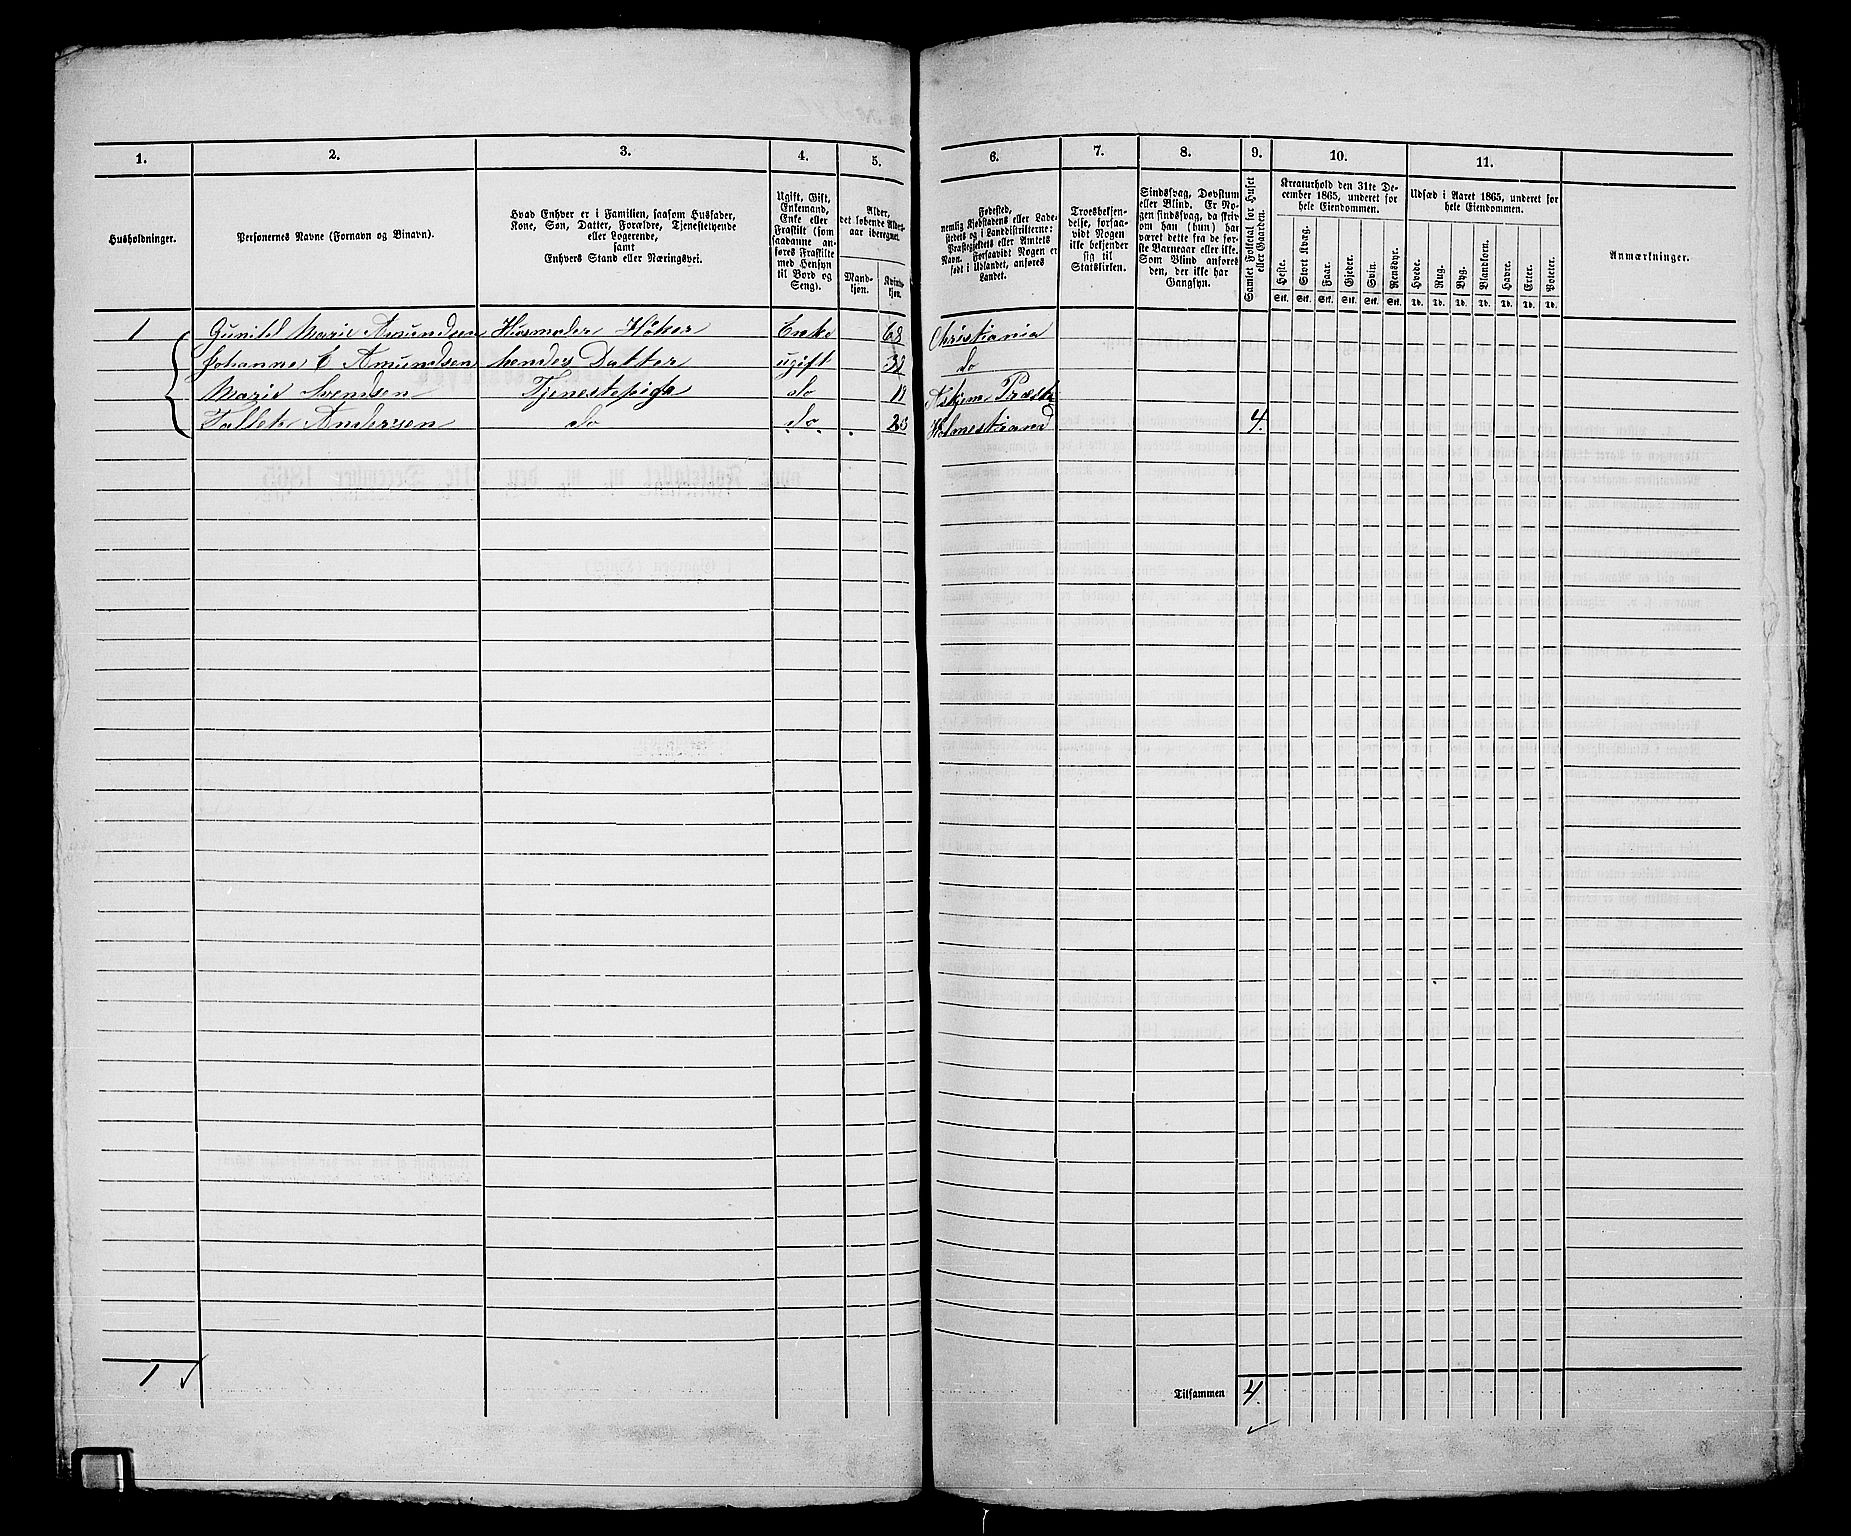 1. 2. 3. 4. 5. 6. 7. 8. 9. 10. 11.
Husholdninger.
Personernes Navne (Fornavn og Binavn).
Hvad Enhver er i Familien, saasom Husfader,
Kone, Søn, Datter, Forældre, Tjenestetyende
eller Logerende,
samt
Enhvers Stand eller Næringsvei.
Ugift, Gift,
Enkemand,
Enke eller
Fraskilt (som
saadanne an-
føres Fraskilte
med Hensyn
til Bord og
Seng).
Alder,
det løbende Alders-
aar iberegnet.
Mand-
kjøn.
Kvinde-
kjøn.
Fødested,
nemlig Kjøbstadens eller Lade-
stedets og i Landdistrikterne:
Præstegjeldets eller Amtets
Navn. Forsaavidt Nogen er
født i Udlandet, anføres
Landet.
Troesbekjen-
delse, forsaa-
vidt Nogen
ikke bekjender
sig til
Statskirken.
Sindssvag, Døvstum
eller Blind. Er No-
gen sindssvag, da skriv
om han (hun) har
været dette fra de før-
ste Barneaar eller ikke.
Som Blind anføres
den, der ikke har
Gangsyn.
Samlet Folketal for Huset
eller Gaarden.
Kreaturhold den 31te De-
cember 1865, underet for
hele Eiendommen.
Heste. Stort Kvæg. Faar. Gjeder. Svin. Rensdyr.
Stk. Stk. Stk. Stk. Stk. Stk.
Udsæd i Aaret 1865, underet for
hele Eiendommen.
Hvede. Rug. Byg. Blandkorn. Havre. Erter. Poteter.
Td. Td. Td. Td. Td. Td. Td.
Anmærkninger.
1 Gunild Marie Amundsen Husmoder Høker Enke 68 Christiania
Johanne C Amundsen hendes Datter ugift 32 do
Marie Svendsen Tjenestepige do
Andersen do do Holmestrand 4.
1
Tilsammen 4.